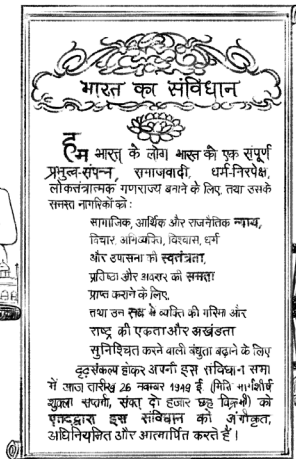 भारत का संविधान
हम भारत के लोग भारत को एक संपूर्ण
प्रभुत्व-संपन्न, समाजवादी, धर्म-निरपेक्ष,
लोकतंत्रात्मक गणराज्य बनाने के लिए, तथा उसके
समस्त नागरिकों को :
सामाजिक, आर्थिक और राजनैतिक न्याय,
विचार, अभिव्यक्ति, विश्वास, धर्म
और उपासना की स्वतंत्रता,
प्रतिष्ठा और अवसर की समता
प्राप्त कराने के लिए,
तथा उन सब में व्यक्ति की गरिमा और
राष्ट्र की एकता और अखंडता
सुनिश्चित करने वाली बंधुता बढ़ाने के लिए
दृढ़संकल्प होकर अपनी इस संविधान सभा
में आज तारीख 26 नवम्बर 1949 ई (मिति मार्गशीर्ष
शुक्ला सप्तमी, संवत दो हजार छह विक्रमी) को
एतद्द्वारा इस संविधान को अंगीकृत,
अधिनियमित और आत्मार्पित करते हैं ।